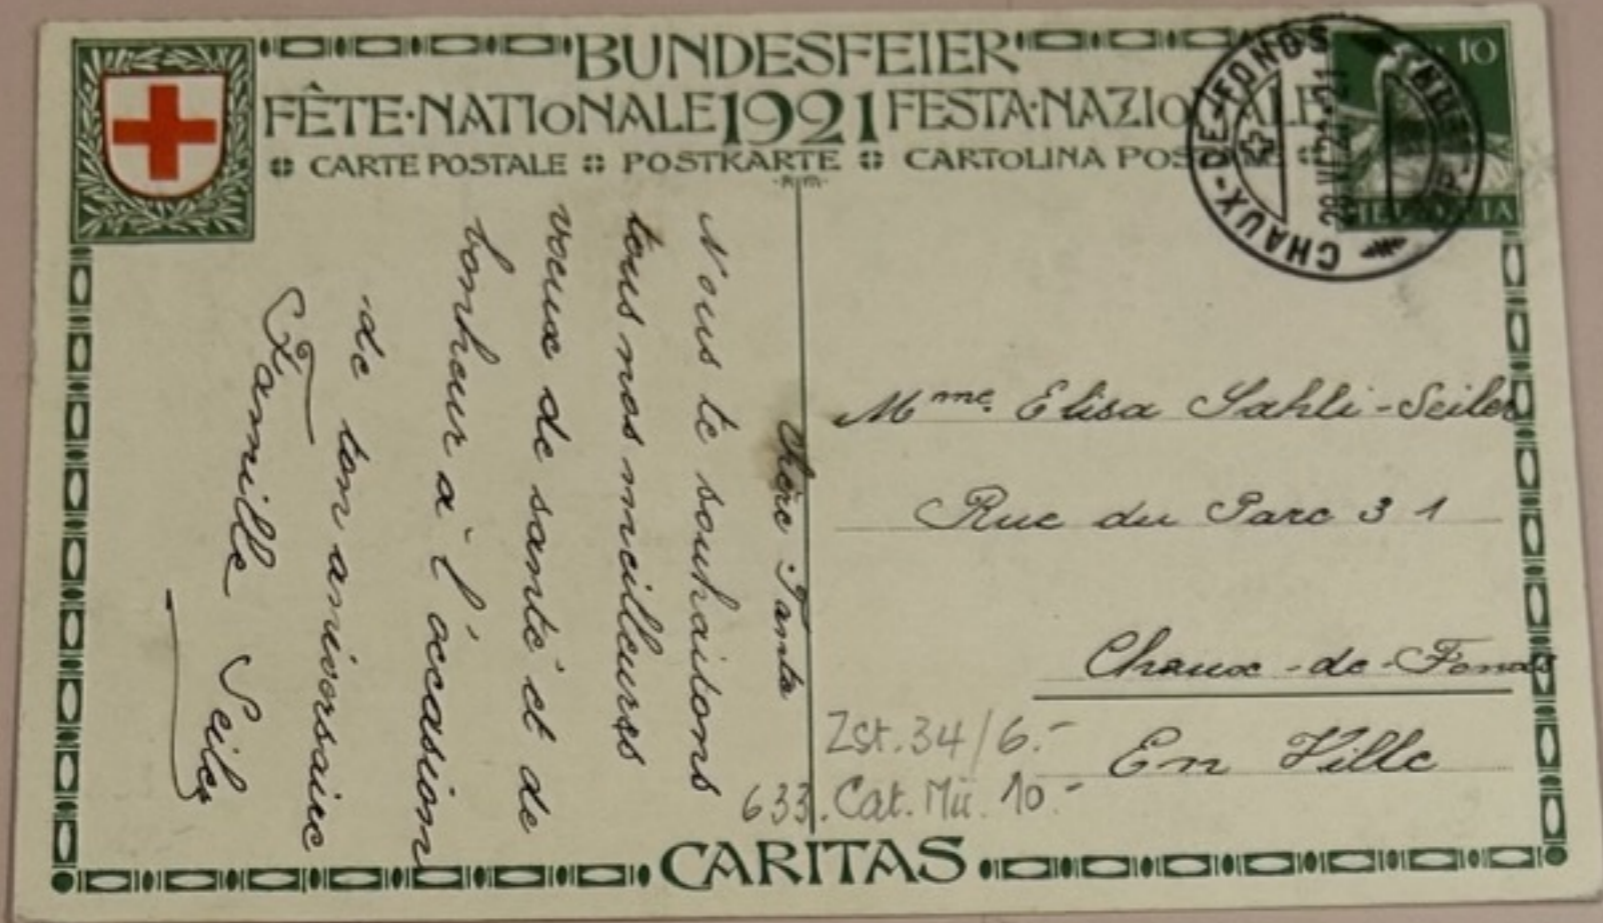 BUNDESFEIER
FÊTE·NATIONALE 1921 FESTA·NAZIONALE
CARTE POSTALE POSTKARTE CARTOLINA POSTALE
10
HELVETIA
CHAUX-DE-FONDS
28.VI.21.-21
Chère Tante
Nous te souhaitons
tous nos meilleurs
voeux de santé et de
bonheur à l'occasion
de ton aniversaire
Famille Seiler
Mme. Elisa Sahli-Seiler
Rue du Parc 31
Chaux-de-Fonds
En Ville
Zst. 34/6.-
633. Cat. Mü. 10.-
CARITAS